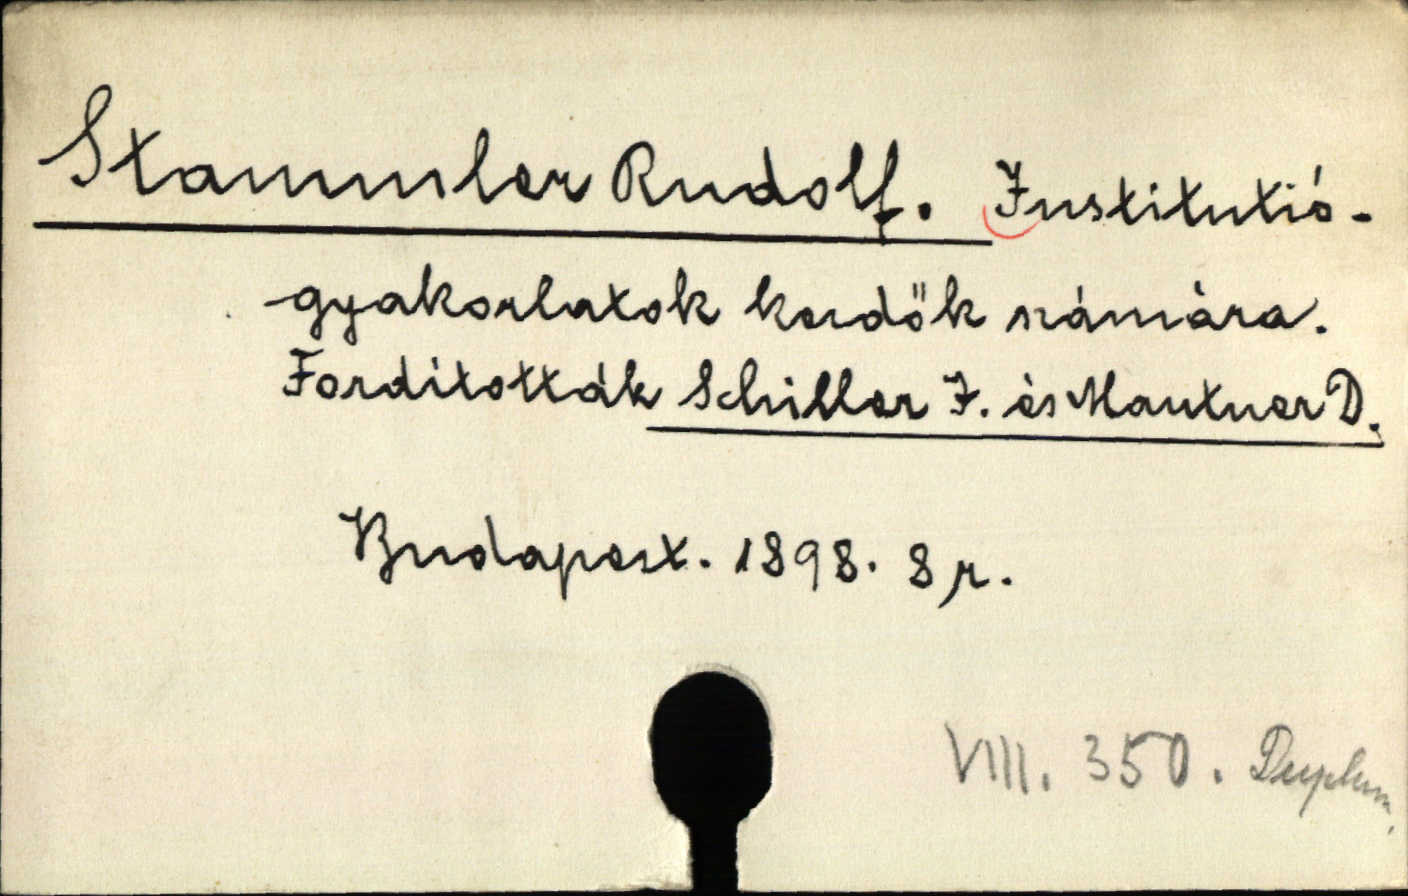 Stammler Rudolf. Institutió-
gyakorlatok kezdők számára.
Fordították Schiller I. és Mautner D.
Budapest. 1898. 8 r.
VIII. 350. Duplum.